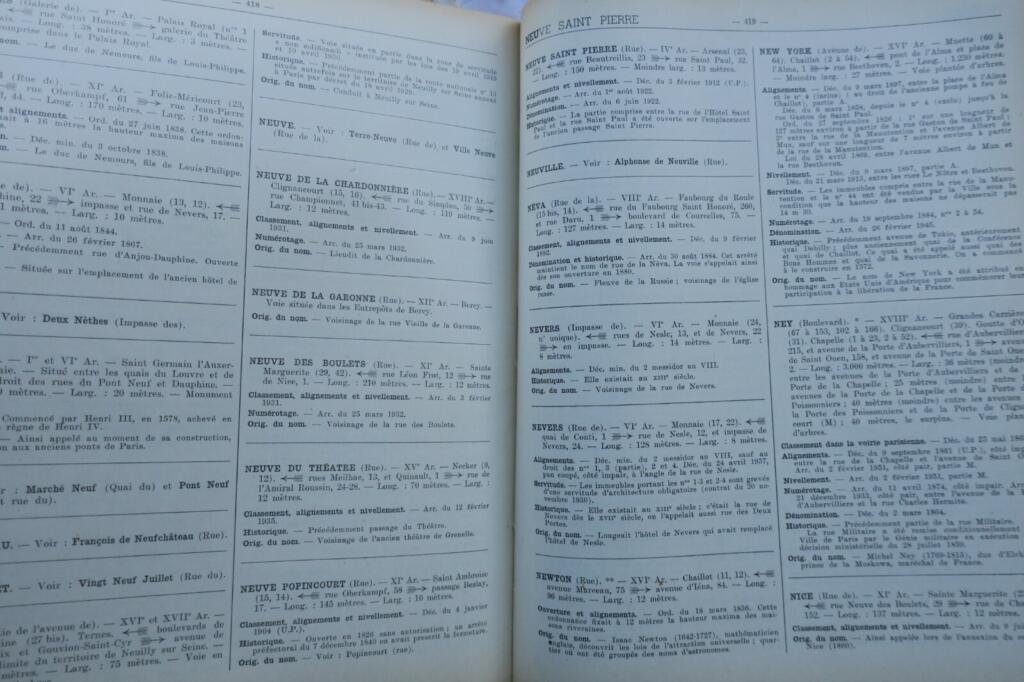 — 418 —
(Galerie de). — Iᵉʳ Ar. — Palais Royal (nᵒˢ 1
rue Saint Honoré galerie du Théâtre
— Long. : 38 mètres. — Larg. : 3 mètres. —
comprise dans le Palais Royal.
nom. — Le duc de Nemours, fils de Louis-Philippe.
(Rue de). — XIᵉ Ar. — Folie-Méricourt (23,
rue Oberkampf, 61 rue Jean-Pierre
, 44. — Long. : 170 mètres. — Larg. : 10 mètres.
et alignements. — Ord. du 27 juin 1838. Cette ordon-
à 16 mètres la hauteur maxima des maisons
Déc. min. du 3 octobre 1838.
— Le duc de Nemours, fils de Louis-Philippe.
de). — VIᵉ Ar. — Monnaie (13, 12).
22 impasse et rue de Nevers, 17. —
mètres. — Larg. : 10 mètres.
— Ord. du 11 août 1844.
— Arr. du 26 février 1867.
Précédemment rue d'Anjou-Dauphine. Ouverte
— Située sur l'emplacement de l'ancien hôtel de
Voir : Deux Nèthes (Impasse des).
— Iᵉʳ et VIᵉ Ar. — Saint Germain l'Auxer-
— Situé entre les quais du Louvre et de
droit des rues du Pont Neuf et Dauphine. —
mètres. — Larg. : 20 mètres. — Monument
Commencé par Henri III, en 1578, achevé en
règne de Henri IV.
— Ainsi appelé au moment de sa construction,
aux anciens ponts de Paris.
: Marché Neuf (Quai du) et Pont Neuf
et rue du).
— Voir : François de Neufchâteau (Rue).
— Voir : Vingt Neuf Juillet (Rue du).
de l'avenue de). — XVIᵉ et XVIIᵉ Ar.
(27 bis). Ternes. boulevards de
et Gouvion-Saint-Cyr avenue de
limite du territoire de Neuilly sur Seine. —
— Larg. : 75 mètres. — Voie en
Servitude. — Voie située en partie dans la zone de servitude
« non ædificandi » instituée par les lois des 19 avril 1919
et 10 avril 1930.
Historique. — Précédemment partie de la route nationale nº 13
située autrefois sur le territoire de Neuilly sur Seine annexé
à Paris par décret du 18 avril 1929.
Orig. du nom. — Conduit à Neuilly sur Seine.
NEUVE. — Voir : Terre-Neuve (Rue de) et Ville Neuve
(Rue de la).
NEUVE DE LA CHARDONNIÈRE (Rue). — XVIIIᵉ Ar. —
Clignancourt (15, 16). rue du Simplon, 50
rue Championnet, 41 bis-43. — Long. : 119 mètres. —
Larg. : 12 mètres.
Classement, alignements et nivellement. — Arr. du 9 juin
1931.
Numérotage. — Arr. du 25 mars 1932.
Orig. du nom. — Lieudit de la Chardonnière.
NEUVE DE LA GARONNE (Rue). — XIIᵉ Ar. — Bercy. —
Voie située dans les Entrepôts de Bercy.
Orig. du nom. — Voisinage de la rue Vieille de la Garonne.
NEUVE DES BOULETS (Rue). — XIᵉ Ar. — Sainte
Marguerite (29, 42). rue Léon Frot, 12 rue
de Nice, 1. — Long. : 210 mètres. — Larg. : 12 mètres.
Classement, alignements et nivellement. — Arr. du 3 février
1931.
Numérotage. — Arr. du 25 mars 1932.
Orig. du nom. — Voisinage de la rue des Boulets.
NEUVE DU THÉATRE (Rue). — XVᵉ Ar. — Necker (9,
12). rues Meilhac, 13, et Quinault, 1 rue de
l'Amiral Roussin, 24-28. — Long. : 70 mètres. — Larg. :
12 mètres.
Classement, alignements et nivellement. — Arr. du 12 février
1935.
Historique. — Précédemment passage du Théâtre.
Orig. du nom. — Voisinage de l'ancien théâtre de Grenelle.
NEUVE POPINCOURT (Rue). — XIᵉ Ar. — Saint Ambroise
(15, 14). rue Oberkampf, 58 passage Beslay,
17. — Long. : 145 mètres. — Larg. : 10 mètres.
Classement, alignements et nivellement. — Déc. du 4 janvier
1904 (U.P.).
Historique. — Ouverte en 1826 sans autorisation ; un arrêté
préfectoral du 7 décembre 1840 en avait prescrit la fermeture.
Orig. du nom. — Voir : Popincourt (rue).
NEUVE SAINT PIERRE — 419 —
NEUVE SAINT PIERRE (Rue). — IVᵉ Ar. — Arsenal (23,
22). rue Beautreillis, 23 rue Saint Paul, 32.
— Long. : 150 mètres. — Moindre larg. : 13 mètres.
Alignements et nivellement. — Déc. du 3 février 1912 (U.P.).
Numérotage. — Arr. du 1ᵉʳ août 1922.
Dénomination. — Arr. du 6 juin 1922.
Historique. — La partie comprise entre la rue de l'Hôtel Saint
Paul et la rue Saint Paul a été ouverte sur l'emplacement
de l'ancien passage Saint Pierre.
NEUVILLE. — Voir : Alphonse de Neuville (Rue).
NÉVA (Rue de la). — VIIIᵉ Ar. — Faubourg du Roule
(15 bis, 14). rue du Faubourg Saint Honoré, 260,
et rue Daru, 1 boulevard de Courcelles, 75. —
Long. : 127 mètres. — Larg. : 14 mètres.
Classement, alignements et nivellement. — Déc. du 9 février
1882.
Dénomination et historique. — Arr. du 30 août 1884. Cet arrêté
maintient le nom de rue de la Néva. La voie s'appelait ainsi
dès son ouverture en 1880.
Orig. du nom. — Fleuve de la Russie ; voisinage de l'église
russe.
NEVERS (Impasse de). — VIᵉ Ar. — Monnaie (24,
nº unique). rues de Nesle, 13, et de Nevers, 22
en impasse. — Long. : 14 mètres. — Larg. :
8 mètres.
Alignements. — Déc. min. du 2 messidor an VIII.
Historique. — Elle existait au XIIIᵉ siècle.
Orig. du nom. — Voisinage de la rue de Nevers.
NEVERS (Rue de). — VIᵉ Ar. — Monnaie (17, 22).
quai de Conti, 1 rue de Nesle, 12, et impasse de
Nevers, 24. — Long. : 128 mètres. — Larg. : 8 mètres.
Alignements. — Déc. min. du 2 messidor an VIII, sauf au
droit des nᵒˢ 1, 3 (partie), 2 et 4. Déc. du 24 avril 1937,
pan coupé, côté impair, à l'angle de la rue de Nesle.
Servitude. — Les immeubles portant les nᵒˢ 1-3 et 2-4 sont grevés
d'une servitude d'architecture obligatoire (contrat du 20 no-
vembre 1930).
Historique. — Elle existait au XIIIᵉ siècle ; c'était la rue de
Nevers dès le XVIIᵉ siècle, on l'appelait aussi rue des Deux
Portes.
Orig. du nom. — Longeait l'hôtel de Nevers qui avait remplacé
l'hôtel de Nesle.
NEWTON (Rue). ** — XVIᵉ Ar. — Chaillot (11, 12).
avenue Marceau, 75 avenue d'Iéna, 84. — Long. :
96 mètres. — Larg. : 12 mètres.
Ouverture et alignements. — Ord. du 18 mars 1836. Cette
ordonnance fixait à 12 mètres la hauteur maxima des mai-
sons riveraines.
Orig. du nom. — Isaac Newton (1642-1727), mathématicien
anglais, découvrit les lois de l'attraction universelle ; quar-
tier où ont été groupés des noms d'astronomes.
NEW YORK (Avenue de). — XVIᵉ Ar. — Muette (60 à
64). Chaillot (2 à 54). pont de l'Alma et place de
l'Alma, 1 rue Beethoven, 2. — Long. : 1.250 mètres. —
Moindre larg. : 27 mètres. — Voie plantée d'arbres.
Alignements. — Déc. du 9 mars 1897, entre la place de l'Alma
et le nº 4 (inclus) ; au droit de l'ancienne pompe à feu de
Chaillot), partie A.
Déc. du 6 mars 1858, depuis le nº 4 (exclu) jusqu'à la
rue Gaston de Saint Paul.
Ord. du 27 septembre 1826 : 1º sur une longueur de
127 mètres environ à partir de la rue Gaston de Saint Paul ;
2º entre la rue de la Manutention et l'avenue Albert de
Mun, sauf sur une longueur de 7 mètres environ à partir
de la rue de la Manutention.
Loi du 28 avril 1869, entre l'avenue Albert de Mun et
la rue Beethoven.
Nivellement. — Déc. du 9 mars 1897, partie A.
Déc. du 21 mars 1913, entre les rues Le Nôtre et Beethoven.
Servitude. — Les immeubles compris entre la rue de la Manu-
tention et le nº 44 ont été vendus par la Ville sous la
condition que la hauteur des maisons ne dépasserait pas
14 m 30.
Numérotage. — Arr. du 19 septembre 1884, nᵒˢ 2 à 54.
Dénomination. — Arr. du 26 février 1945.
Historique. — Précédemment avenue de Tokio, antérieurement
quai Debilly ; plus anciennement quai de la Conférence
et quai de Chaillot. Ce quai a été appelé aussi quai des
Bons Hommes et quai de la Savonnerie. On a commencé
à le construire en 1572.
Orig. du nom. — Le nom de New York a été attribué en
hommage aux Etats Unis d'Amérique pour commémorer leur
participation à la libération de la France.
NEY (Boulevard). * — XVIIIᵉ Ar. — Grandes Carrières
(67 à 153, 102 à 166). Clignancourt (39). Goutte d'Or
(31). Chapelle (1 à 23, 2 à 52). rue d'Aubervilliers,
215, et avenue de la Porte d'Aubervilliers, 1 avenue
de Saint Ouen, 158, et avenue de la Porte de Saint Ouen,
2. — Long. : 3.000 mètres. — Larg. : 36 mètres (moindre)
entre les avenues de la Porte d'Aubervilliers et de la
Porte de la Chapelle ; 25 mètres (moindre) entre les
avenues de la Porte de la Chapelle et de la Porte des
Poissonniers ; 40 mètres (moindre) entre les avenues de
la Porte des Poissonniers et de la Porte de Clignan-
court (M) ; 40 mètres, le surplus. — Voie plantée
d'arbres.
Classement dans la voirie parisienne. — Déc. du 23 mai 1863.
Alignements. — Déc. du 9 septembre 1861 (U.P.), côté impair
entre la rue de la Chapelle et l'avenue de Saint Ouen.
Arr. du 2 février 1951, côté pair, partie M.
Nivellement. — Arr. du 2 février 1951, partie M.
Numérotage. — Arr. du 11 avril 1874, côté impair. Arr. du
21 décembre 1933, côté pair, entre l'avenue de la Porte
d'Aubervilliers et la rue Charles Hermite.
Dénomination. — Déc. du 2 mars 1864.
Historique. — Précédemment partie de la rue Militaire.
La rue Militaire a été remise conditionnellement à la
Ville de Paris par le Génie militaire en exécution d'une
décision ministérielle du 28 juillet 1859.
Orig. du nom. — Michel Ney (1769-1815), duc d'Elchingen,
prince de la Moskowa, maréchal de France.
NICE (Rue de). — XIᵉ Ar. — Sainte Marguerite
rue Neuve des Boulets, 29 rue de
152. — Long. : 137 mètres. — Larg. : 12 mètres.
Classement, alignements et nivellement. — Arr. du 9
Orig. du nom. — Ainsi appelée lors de l'annexion du
Nice (1860).